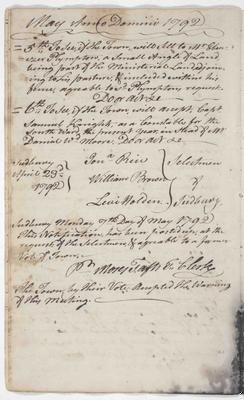 May Anno Domini 1792
= 5th To see, if the Town, will sell to Mr Ebenezer Plympton, a Small Angle of Land
being part of the Ministerial Land adjoining to his pasture, & inclosed within his
fence, agreeable to sd Plympton, request.
= 6th To see, if the Town, will accept, Capt
Samuel Knight, as a Constable for the
South Ward, the present year, in Stead of Mr
Daniel More, D
Sudbury
April 23d
1792
Jona Rice
William Brown
Levi Holden
Selectmen
of
Sudbury
Sudbury Monday 7th Day of May 1792
This Notification, has been posted up, at the
request of the Selectmen, & agreeable to a former
Vote of Town.
Moses
Clerk
The Town, by their Vote, Accepted the Warning
of this Meeting.